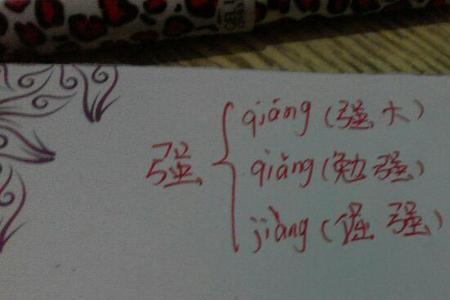 强
qiáng (强大)
qiǎng (勉强)
jiàng (倔强)